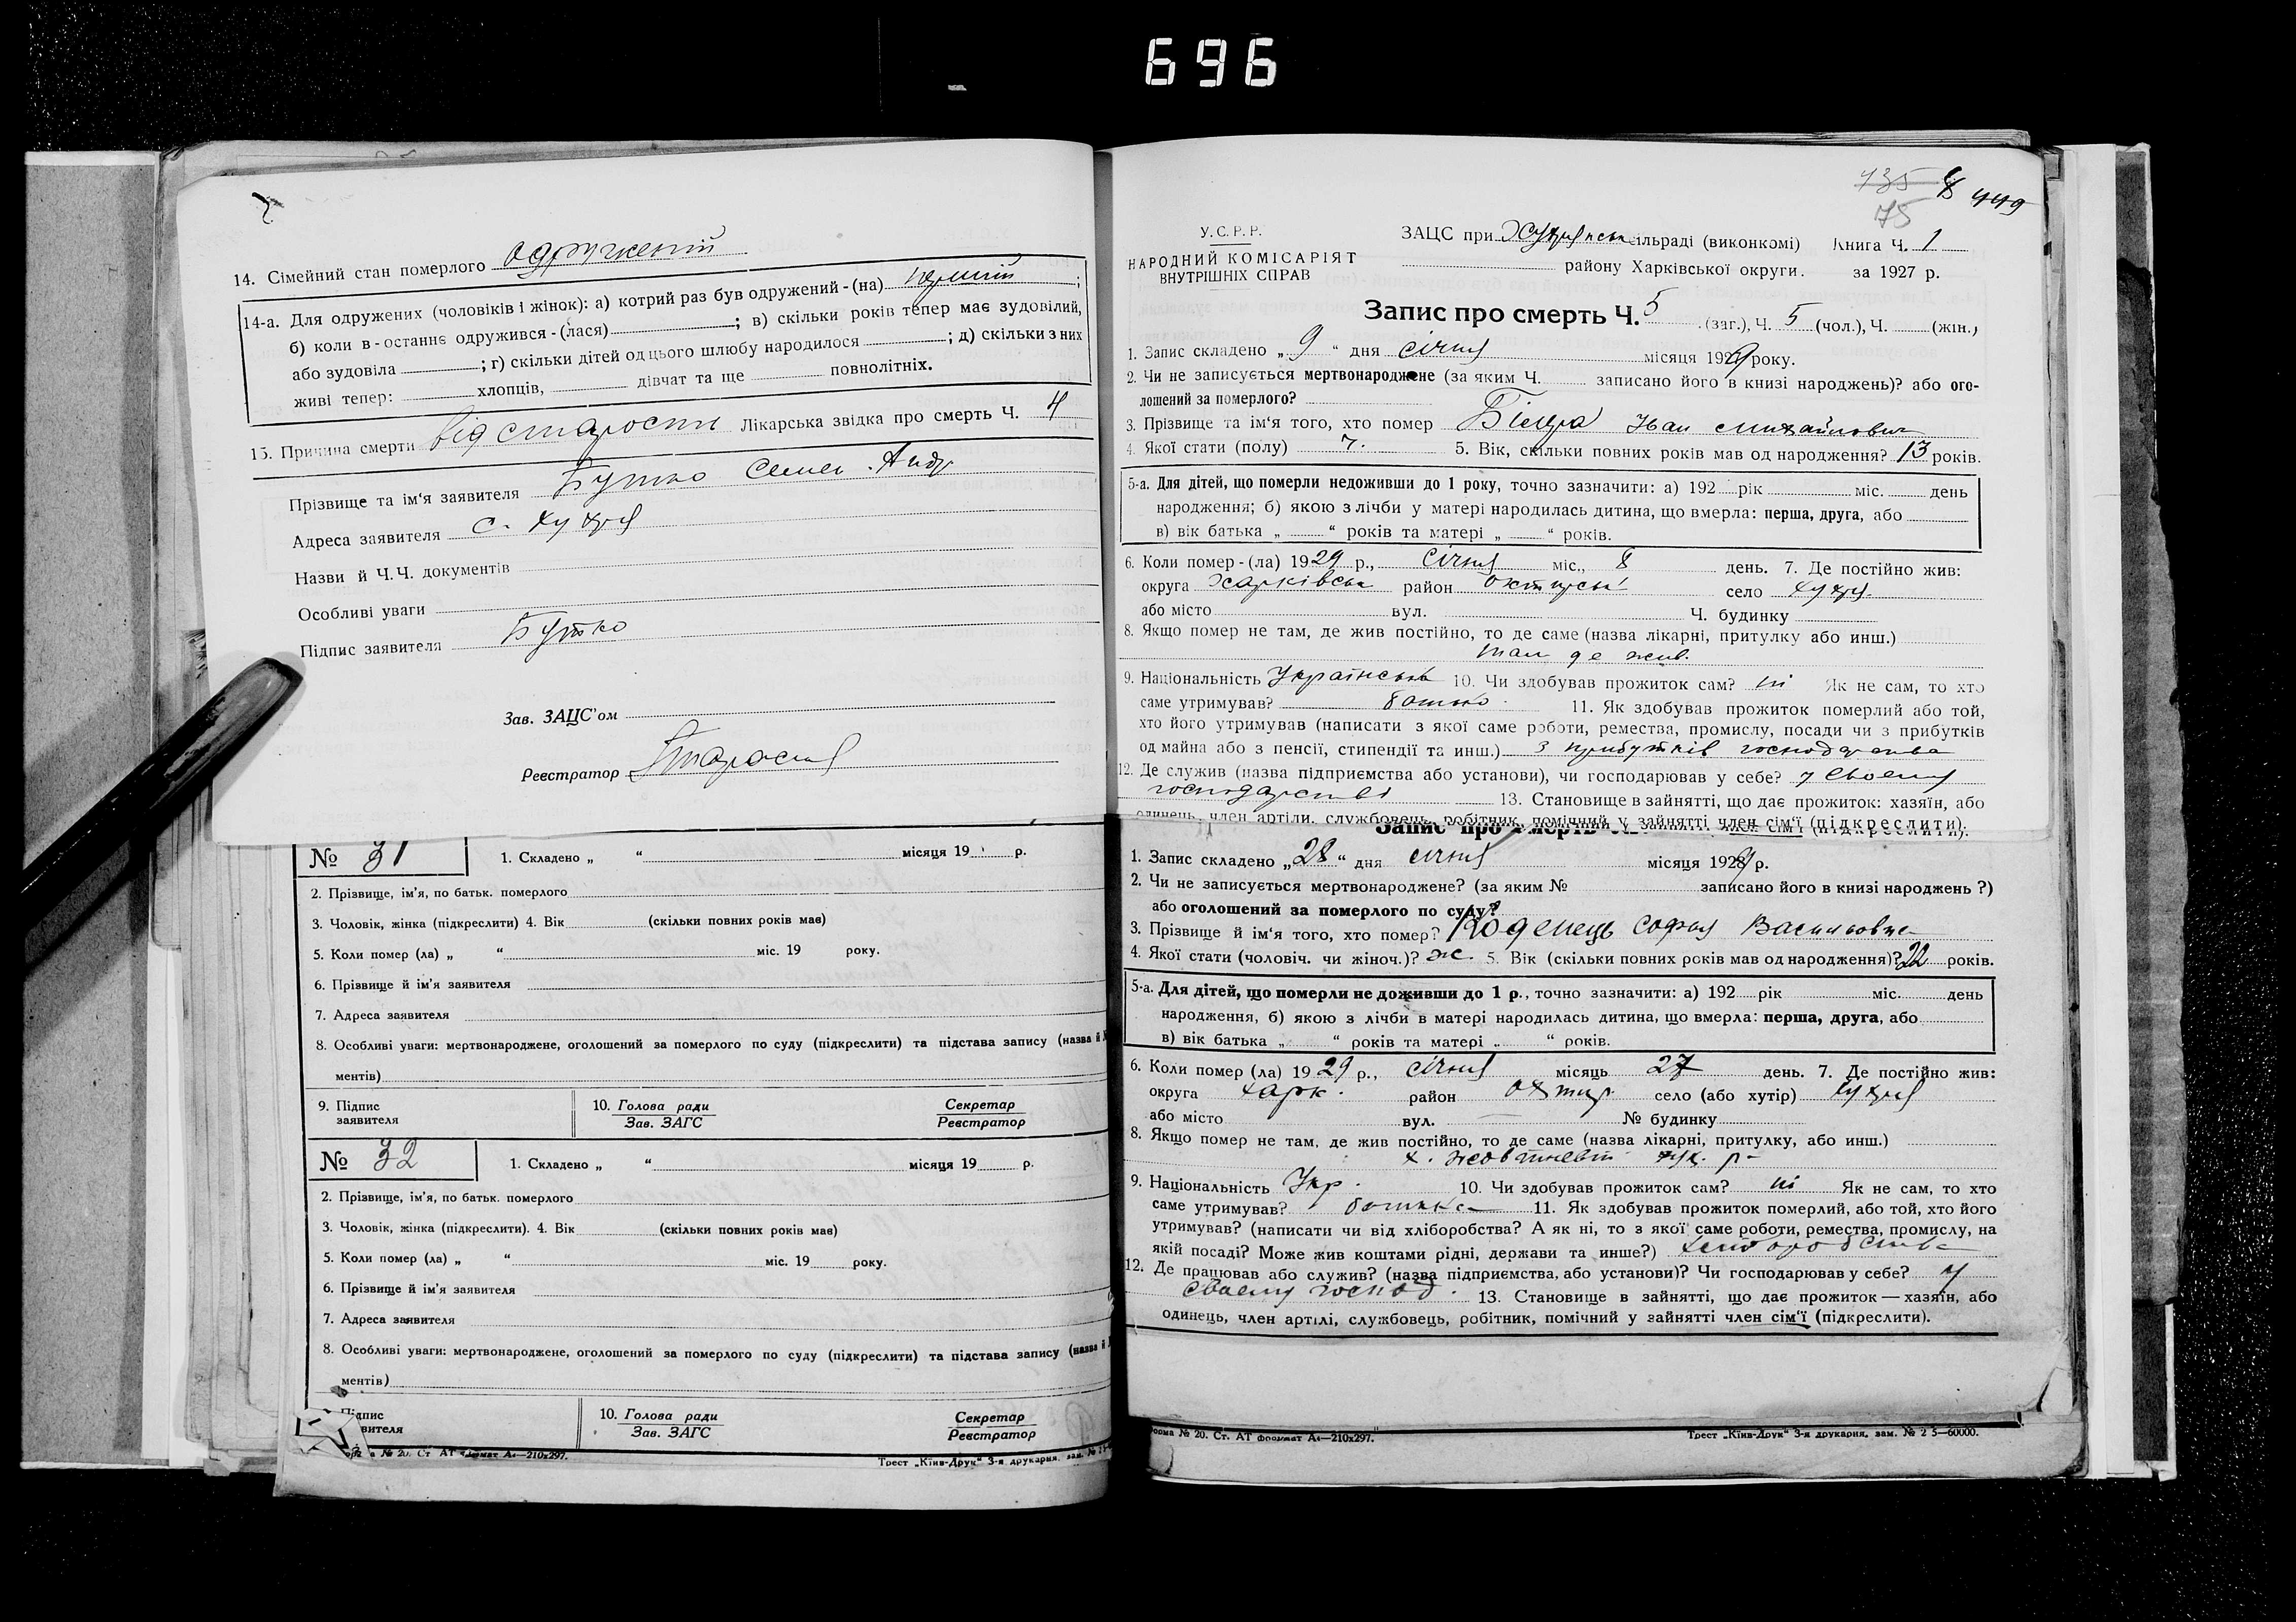 696
14. Сімейний стан померлого одружений
14-а. Для одружених (чоловіків і жінок): а) котрий раз був одружений - (на) перший ;
б) коли в - останнє одружився - (лася) ; в) скільки років тепер має зудовілий,
або зудовіла ; г) скільки дітей од цього шлюбу народилося ; д) скільки з них
живі тепер: хлопців, дівчат та ще повнолітніх.
15. Причина смерти від старости Лікарська звідка про смерть Ч. 4
Прізвище та ім'я заявителя Бутко Семен Андр
Адреса заявителя с. Хухря
Назви й Ч.Ч. документів
Особливі уваги
Підпис заявителя Бутко
Зав. ЗАЦС'ом
Реєстратор
№ 31 1. Складено „ “ місяця 19 р.
2. Прізвище, ім'я, по батьк. померлого
3. Чоловік, жінка (підкреслити) 4. Вік (скільки повних років має)
5. Коли помер (ла) „ “ міс. 19 року.
6. Прізвище й ім'я заявителя
7. Адреса заявителя
8. Особливі уваги: мертвонароджене, оголошений за померлого по суду (підкреслити) та підстава запису (назва й
ментів)
9. Підпис заявителя 10. Голова ради Зав. ЗАГС Секретар Реєстратор
№ 32 1. Складено „ “ місяця 19 р.
2. Прізвище, ім'я, по батьк. померлого
3. Чоловік, жінка (підкреслити). 4. Вік (скільки повних років має)
5. Коли помер (ла) „ “ міс. 19 року.
6. Прізвище й ім'я заявителя
7. Адреса заявителя
8. Особливі уваги: мертвонароджене, оголошений за померлого по суду (підкреслити) та підстава запису (назва й
ментів)
Підпис вителя 10. Голова ради Зав. ЗАГС Секретар Реєстратор
№ 20. Ст. АТ формат А4—210х297. Трест „Київ-Друк“ 3-я друкарня, зам.
135 8 449
75
У.С.Р.Р.
НАРОДНИЙ КОМІСАРІЯТ
ВНУТРІШНІХ СПРАВ
ЗАЦС при Хухрянськ сільраді (виконкомі) Книга Ч. 1
району Харківської округи. за 1927 р.
Запис про смерть Ч. 5 (заг.), Ч. 5 (чол.), Ч. (жін.)
1. Запис складено „ 9 “ дня січня місяця 1929 року.
2. Чи не записується мертвонароджене (за яким Ч. записано його в книзі народжень)? або ого-
лошений за померлого?
3. Прізвище та ім'я того, хто помер Іван Михайлович
4. Якої стати (полу) ч. 5. Вік, скільки повних років мав од народження? 13 років.
5-а. Для дітей, що померли недоживши до 1 року, точно зазначити: а) 192 рік міс. день
народження; б) якою з лічби у матері народилась дитина, що вмерла: перша, друга, або
в) вік батька „ “ років та матері „ “ років.
6. Коли помер - (ла) 1929 р., січня міс., 8 день. 7. Де постійно жив:
округа Харківськ район село Хухря
або місто вул. Ч. будинку
8. Якщо помер не там, де жив постійно, то де саме (назва лікарні, притулку або инш.)
там де жив.
9. Національність Українська 10. Чи здобував прожиток сам? ні Як не сам, то хто
саме утримував? батько. 11. Як здобував прожиток померлий або той,
хто його утримував (написати з якої саме роботи, ремества, промислу, посади чи з прибутків
од майна або з пенсії, стипендії та инш.) з прибутків господарства
12. Де служив (назва підприємства або установи), чи господарював у себе? у своему
господарстві 13. Становище в зайнятті, що дає прожиток: хазяїн, або
одинець, член артіли, службовець, робітник, помічний у зайнятті член сім'ї (підкреслити).
Запис про смерть
1. Запис складено „28“ дня січня місяця 1929 р.
2. Чи не записується мертвонароджене? (за яким № записано його в книзі народжень ?)
або оголошений за померлого по суду?
3. Прізвище й ім'я того, хто помер? Коденець Софья Васильовна
4. Якої стати (чоловіч. чи жіноч.)? ж. 5. Вік (скільки повних років мав од народження)? 22 років.
5-а. Для дітей, що померли не доживши до 1 р., точно зазначити: а) 192 рік міс. день
народження, б) якою з лічби в матері народилась дитина, що вмерла: перша, друга, або
в) вік батька „ “ років та матері „ “ років.
6. Коли помер (ла) 1929 р., січня місяць 27 день. 7. Де постійно жив:
округа Харк. район Охтир. село (або хутір) Хухря
або місто вул. — № будинку
8. Якщо помер не там, де жив постійно, то де саме (назва лікарні, притулку, або инш.)
х.
9. Національність Укр. 10. Чи здобував прожиток сам? ні Як не сам, то хто
саме утримував? батько 11. Як здобував прожиток померлий, або той, хто його
утримував? (написати чи від хліборобства? А як ні, то з якої саме роботи, ремества, промислу, на
якій посаді? Може жив коштами рідні, держави та инше?) хліборобства
12. Де працював або служив? (назва підприємства, або установи)? Чи господарював у себе? у
своему господ. 13. Становище в зайнятті, що дає прожиток — хазяїн, або
одинець, член артілі, службовець, робітник, помічний у зайнятті член сім'ї (підкреслити).
Форма № 20. Ст. АТ формат А4—210х297. Трест „Київ-Друк“ 3-я друкарня, зам. № 2 5—60000.